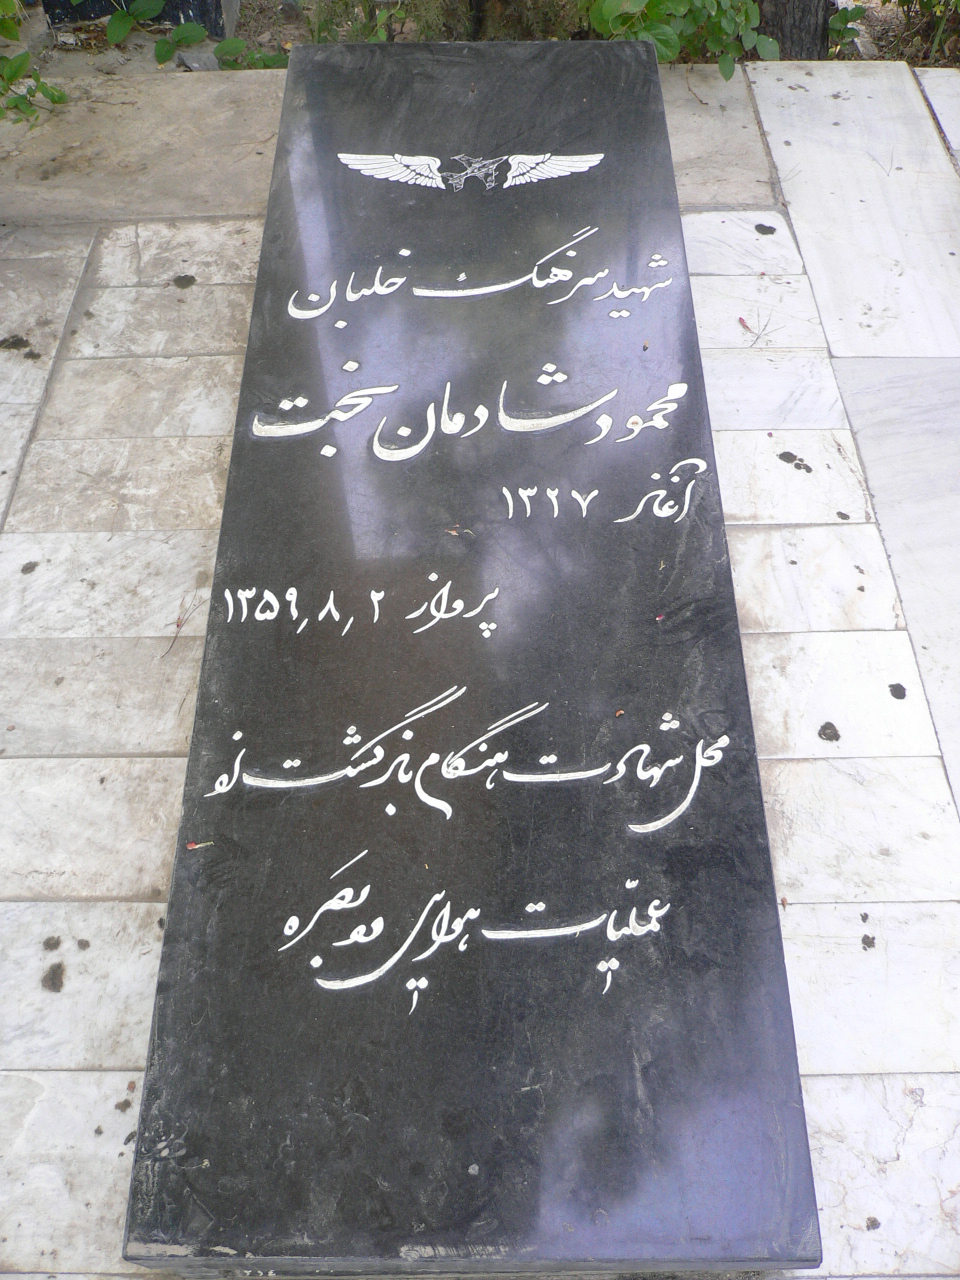 شهید سرهنگ خلبان
محمود شادمان بخت
آغاز ۱۳۲۷
پرواز ۲ / ۸ / ۱۳۵۹
محل شهادت هنگام بازگشت از
عملیات هوایی بصره